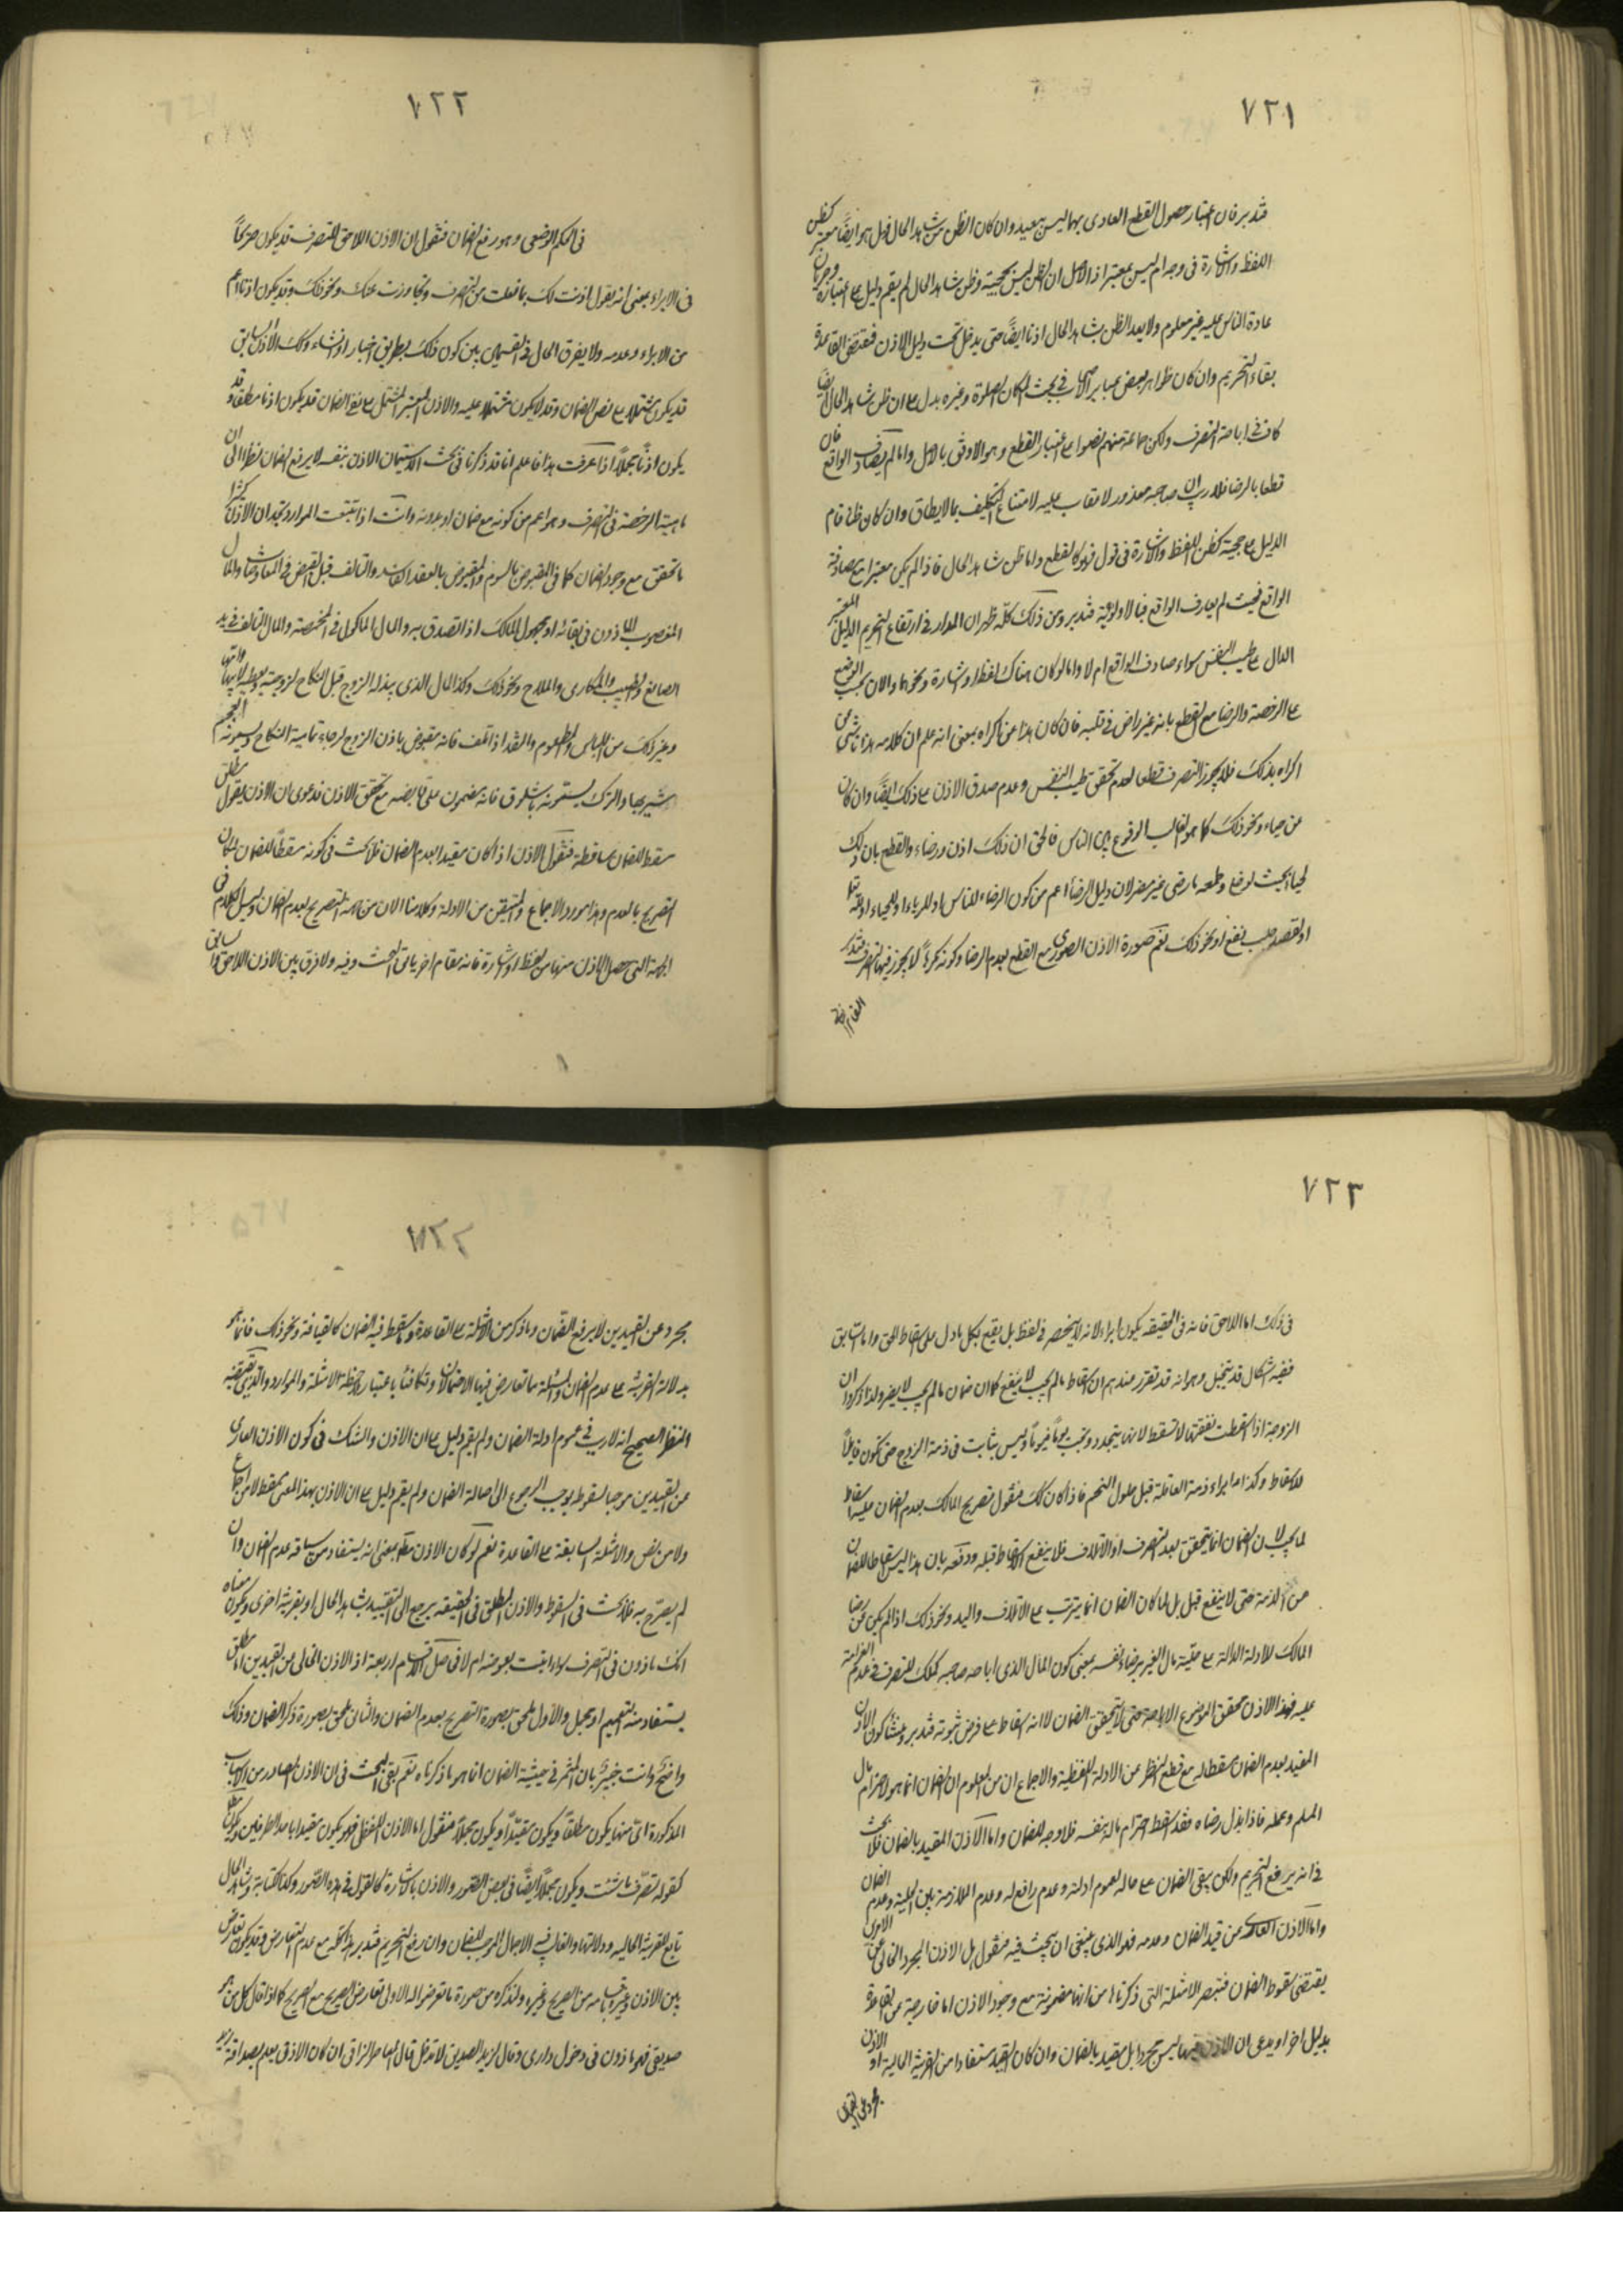 ٧٢١
فتدبر فان اعتبار حصول القطع العادى بها ليس ببعيد وان كان الظن من شاهد الحال فهل هو ايضاً معتبر كظن
اللفظ والاشارة فى وجه ام ليس بمعتبر اذ الاصل ان الظن ليس بحجية وظن شاهد الحال لم يقم دليل على اعتباره وجريان
عادة الناس عليه غير معلوم ولا يعد الظن بشاهد الحال اذنا ايضاً حتى يدخل تحت دليل الاذن فمقتضى القاعدة
بقاء التحريم وان كان ظواهر بعض عباير الاصحاب فى بحث مكان الصلوة وغيره يدل على ان ظن شاهد الحال ايضا
كاف فى اباحة التصرف ولكن جماعة منهم نصوا على اعتبار القطع وهو الاوفق بالاصل واما لم يصادف الواقع فان
قطعا بالرضا فلا ريب ان صاحبه معذور لا عقاب عليه لامتناع التكليف بما لا يطاق وان كان ظنا قام
الدليل على حجية كظن اللفظ والاشارة فى قول فهو كالقطع واما ظن شاهد الحال فاذا لم يكن معتبرا مع مصادفة
الواقع فحيث لم يصادف الواقع فبالاولوية فتدبر ومن ذلك كله ظهر ان المدار فى ارتفاع التحريم الدليل المعتبر
الدال على طيب النفس سواء صادف الواقع ام لا واما لو كان هناك لفظ او اشارة ونحوها والان بحسب الوضع
على الرخصة والرضا مع القطع بانه غير راض فى قلبه فان كان هذا عن اكراه بمعنى انه علم ان كلامه هذا ناشئ عن
اكراه بذلك فلا يجوز التصرف قطعا لعدم تحقق طيب النفس وعدم صدق الاذن على ذلك ايضاً وان كان
عن حياء ونحو ذلك كما هو الغالب الوقوع بين الناس فالحق ان ذلك اذن ورضاء والقطع بان ذلك
لحياء بحيث لو خلى وطبعه ما رضى غير مضر لان دليل الرضا اعم من كون الرضاء للناس او للرياء او للحياء او لله تعالى
او لقصد جلب نفع او نحو ذلك نعم صورة الاذن الصورى مع القطع بعدم الرضا وكونه مكرهاً لا يجوز فيها التصرف فتذكر
٧٢٢
فى الحكم الوضعى وهو رفع الضمان فنقول ان الاذن اللاحق للتصرف قد يكون صريحاً
فى الابراء بمعنى انه يقول اذنت لك بما فعلت من التصرف وتجاوزت عنك ونحو ذلك وقد يكون اذنا اعم
من الابراء وعدمه ولا يفرق الحال فى القسمين بين كون ذلك بطريق اخبار او انشاء وكك الاذن السابق
قد يكون مشتملا على نص الضمان وقد لا يكون مشتملا عليه والاذن المعتبر المشتمل على نفى الضمان قد يكون اذنا مطلقا وقد
يكون اذناً مجملاً اذا عرفت هذا فاعلم انا قد ذكرنا فى بحث الاستيمان الاذن بنفسه لا يرفع الضمان نظرا الى ان
ماهية الرخصة فى التصرف وهو اعم من كونه مع ضمان او بدونه وانت اذا تتبعت الموارد تجد ان الاذن كثيرا
ما تحقق مع وجود الضمان كما فى المقبوض بالسوم والمقبوض بالعقد الفاسد والتالف قبل القبض فى المعاوضات والمال
المغصوب للماذون فى بقائه او مجهول المالك اذا تصدق به والمال الماكول فى المخمصة والمال التالف فى يد
الصانع والطبيب والمكارى والملاح ونحو ذلك وكذا المال الذى يبذله الزوج قبل النكاح لزوجته ويعطيه لابيها وامها
وغير ذلك من اللباس والمطعوم والنقد اذا تلف فانه مقبوض باذن الزوج لرجاء تمامية النكاح ويسمونه العجم
شيربها والترك يسمونه باشلوق فانه مضمون على قابضه مع تحقق الاذن فدعوى ان الاذن بقول مطلق
مسقط للضمان ساقطة فنقول الاذن اذا كان مقيدا بعدم الضمان فلا بحث فى كونه مسقطاً للضمان لمكان
التصريح بالعدم وهذا مورد الاجماع والمتيقن من الادلة وكلامنا الان من جهة التصريح بعدم الضمان وليس الكلام فى
الجهة التى حصل الاذن منها من لفظ او اشارة فانه مقام اخر ياتى البحث وفيه ولا فرق بين الاذن اللاحق والسابق
٧٢٣
فى ذلك اما اللاحق فانه فى الحقيقة يكون ابراء لانه لا ينحصر فى لفظ بل يقع بكل ما دل على اسقاط الحق واما السابق
ففيه اشكال قد يتخيل وهو انه قد تقرر عندهم ان اسقاط ما لم يجب لا ينفع كما ان ضمان ما لم يجب لا يضر ولذا ذكروا ان
الزوجة اذا اسقطت نفقتها لا تسقط لانها يتجدد وتجب يوماً فيوماً وليس بثابت فى ذمة الزوج حتى تكون قابلاً
للاسقاط وكذا ابراء ذمة العاقلة قبل حلول النجم فاذا كان كك فنقول تصريح المالك بعدم الضمان عليه اسقاط
لما لم يجب لان الضمان انما يتحقق بعد التصرف او الاتلاف فلا ينفع الاسقاط قبله ودفعه بان هذا ليس اسقاطا للضمان
من الذمة حتى لا ينفع قبل بل لما كان الضمان انما يترتب على الاتلاف واليد ونحو ذلك اذا لم يكن عن رضا
المالك للادلة الدالة على حلية مال الغير برضاء نفسه بمعنى كون المال الذى اباحه صاحبه كملك للمتصرف فى عدم الغرامة
عليه فهذا الاذن محقق لموضوع الاباحة حتى لا يتحقق الضمان لا انه اسقاط على فرض ثبوته فتدبر ومنشأ كون الاذن
المقيد بعدم الضمان مسقطا له مع قطع النظر عن الادلة اللفظية والاجماع ان من المعلوم ان الضمان انما هو لاحترام مال
المسلم وعمله فاذا بذل رضاه فقد اسقط احترام ماله بنفسه فلا وجه للضمان واما الاذن المقيد بالضمان فلا بحث
فى انه يرفع التحريم ولكن يبقى الضمان على حاله لعموم ادلته وعدم رافع له وعدم الملازمة بين الحلية وعدم الضمان
واما الاذن العارى من قيد الضمان وعدمه فهو الذى ينبغى ان يبحث فيه فنقول هل الاذن المجرد الخالى عن الامرين
يقتضى سقوط الضمان فتبصر الامثلة التى ذكرناها من انها مضمونة مع وجود الاذن اما خارجة عن القاعدة
بدليل اخر او يدعى ان الاذن فيها ليس مجردا بل مقيد بالضمان وان كان القيد مستفادا من القرينة الحالية او الاذن
٧٢٤
مجرد عن القيدين لا يرفع الضمان وما ذكر من الامثلة على القاعدة وما سقط فيه الضمان كالضيافة ونحو ذلك فانما هو
بدلالة القرينة على عدم الضمان والمسئلة مما تعارض فيها الاحتمالان وتكافئا باعتبار ملاحظة الامثلة والموارد والذى يقتضيه
النظر الصحيح انه لا ريب فى عموم ادلة الضمان ولم يقم دليل على ان الاذن والشك فى كون الاذن العارى
عن القيدين موجبا لسقوط يوجب الرجوع الى اصالة الضمان ولم يقم دليل على ان الاذن بهذا المعنى مسقط لا من اجماع
ولا من نص والامثلة السابقة على القاعدة نعم لو كان الاذن مطلقا بمعنى انه يستفاد من سياقه عدم الضمان وان
لم يصرح به فلا بحث فى السقوط والاذن المطلق فى الحقيقة يرجع الى التقييد بشاهد الحال او بقرينة اخرى ويكون معناه
انك ماذون فى التصرف سواء اتيت بعوضه ام لا فحاصل الاقسام اربعة اذ الاذن الخالى من القيدين اما مطلق
يستفاد منه التعميم او مجمل والاول ملحق بصورة التصريح بعدم الضمان والثانى ملحق بصورة ذكر الضمان وذلك
واضح وانت خبير بان المثمر فى حيثية الضمان انما هو ما ذكرناه نعم بقى البحث فى ان الاذن الصادر من الاسباب
المذكورة اىّ منها يكون مطلقاً ويكون مقيّداً ويكون مجملاً فنقول اما الاذن اللفظى فهو يكون مقيدا باحد الطرفين ويكون مطلقا
كقوله تصرّف ما شئت ويكون مجملاً ايضاً فى بعض الصور والاذن بالاشارة كالقول فى هذه الصور وكذا الكتابة وشاهد الحال
تابع للقرينة الحالية ودلالتها والغالب فيه الاجمال الموجب للضمان وان رفع التحريم فتدبر هذا كله مع عدم التعارض وقد يكون تعارض
بين الاذن وغيره باقسامه من الصريح وغيره ولنذكره من صورة ما تعرضوا له الاولى تعارض الصريح مع الصريح كما اذا قال كل من هو
صديقى فهو ماذون فى دخول دارى وقال لزيد الصديق لا تدخل قال الفاضل النراقى ان كان الاذن يعلم بصداقة زيد